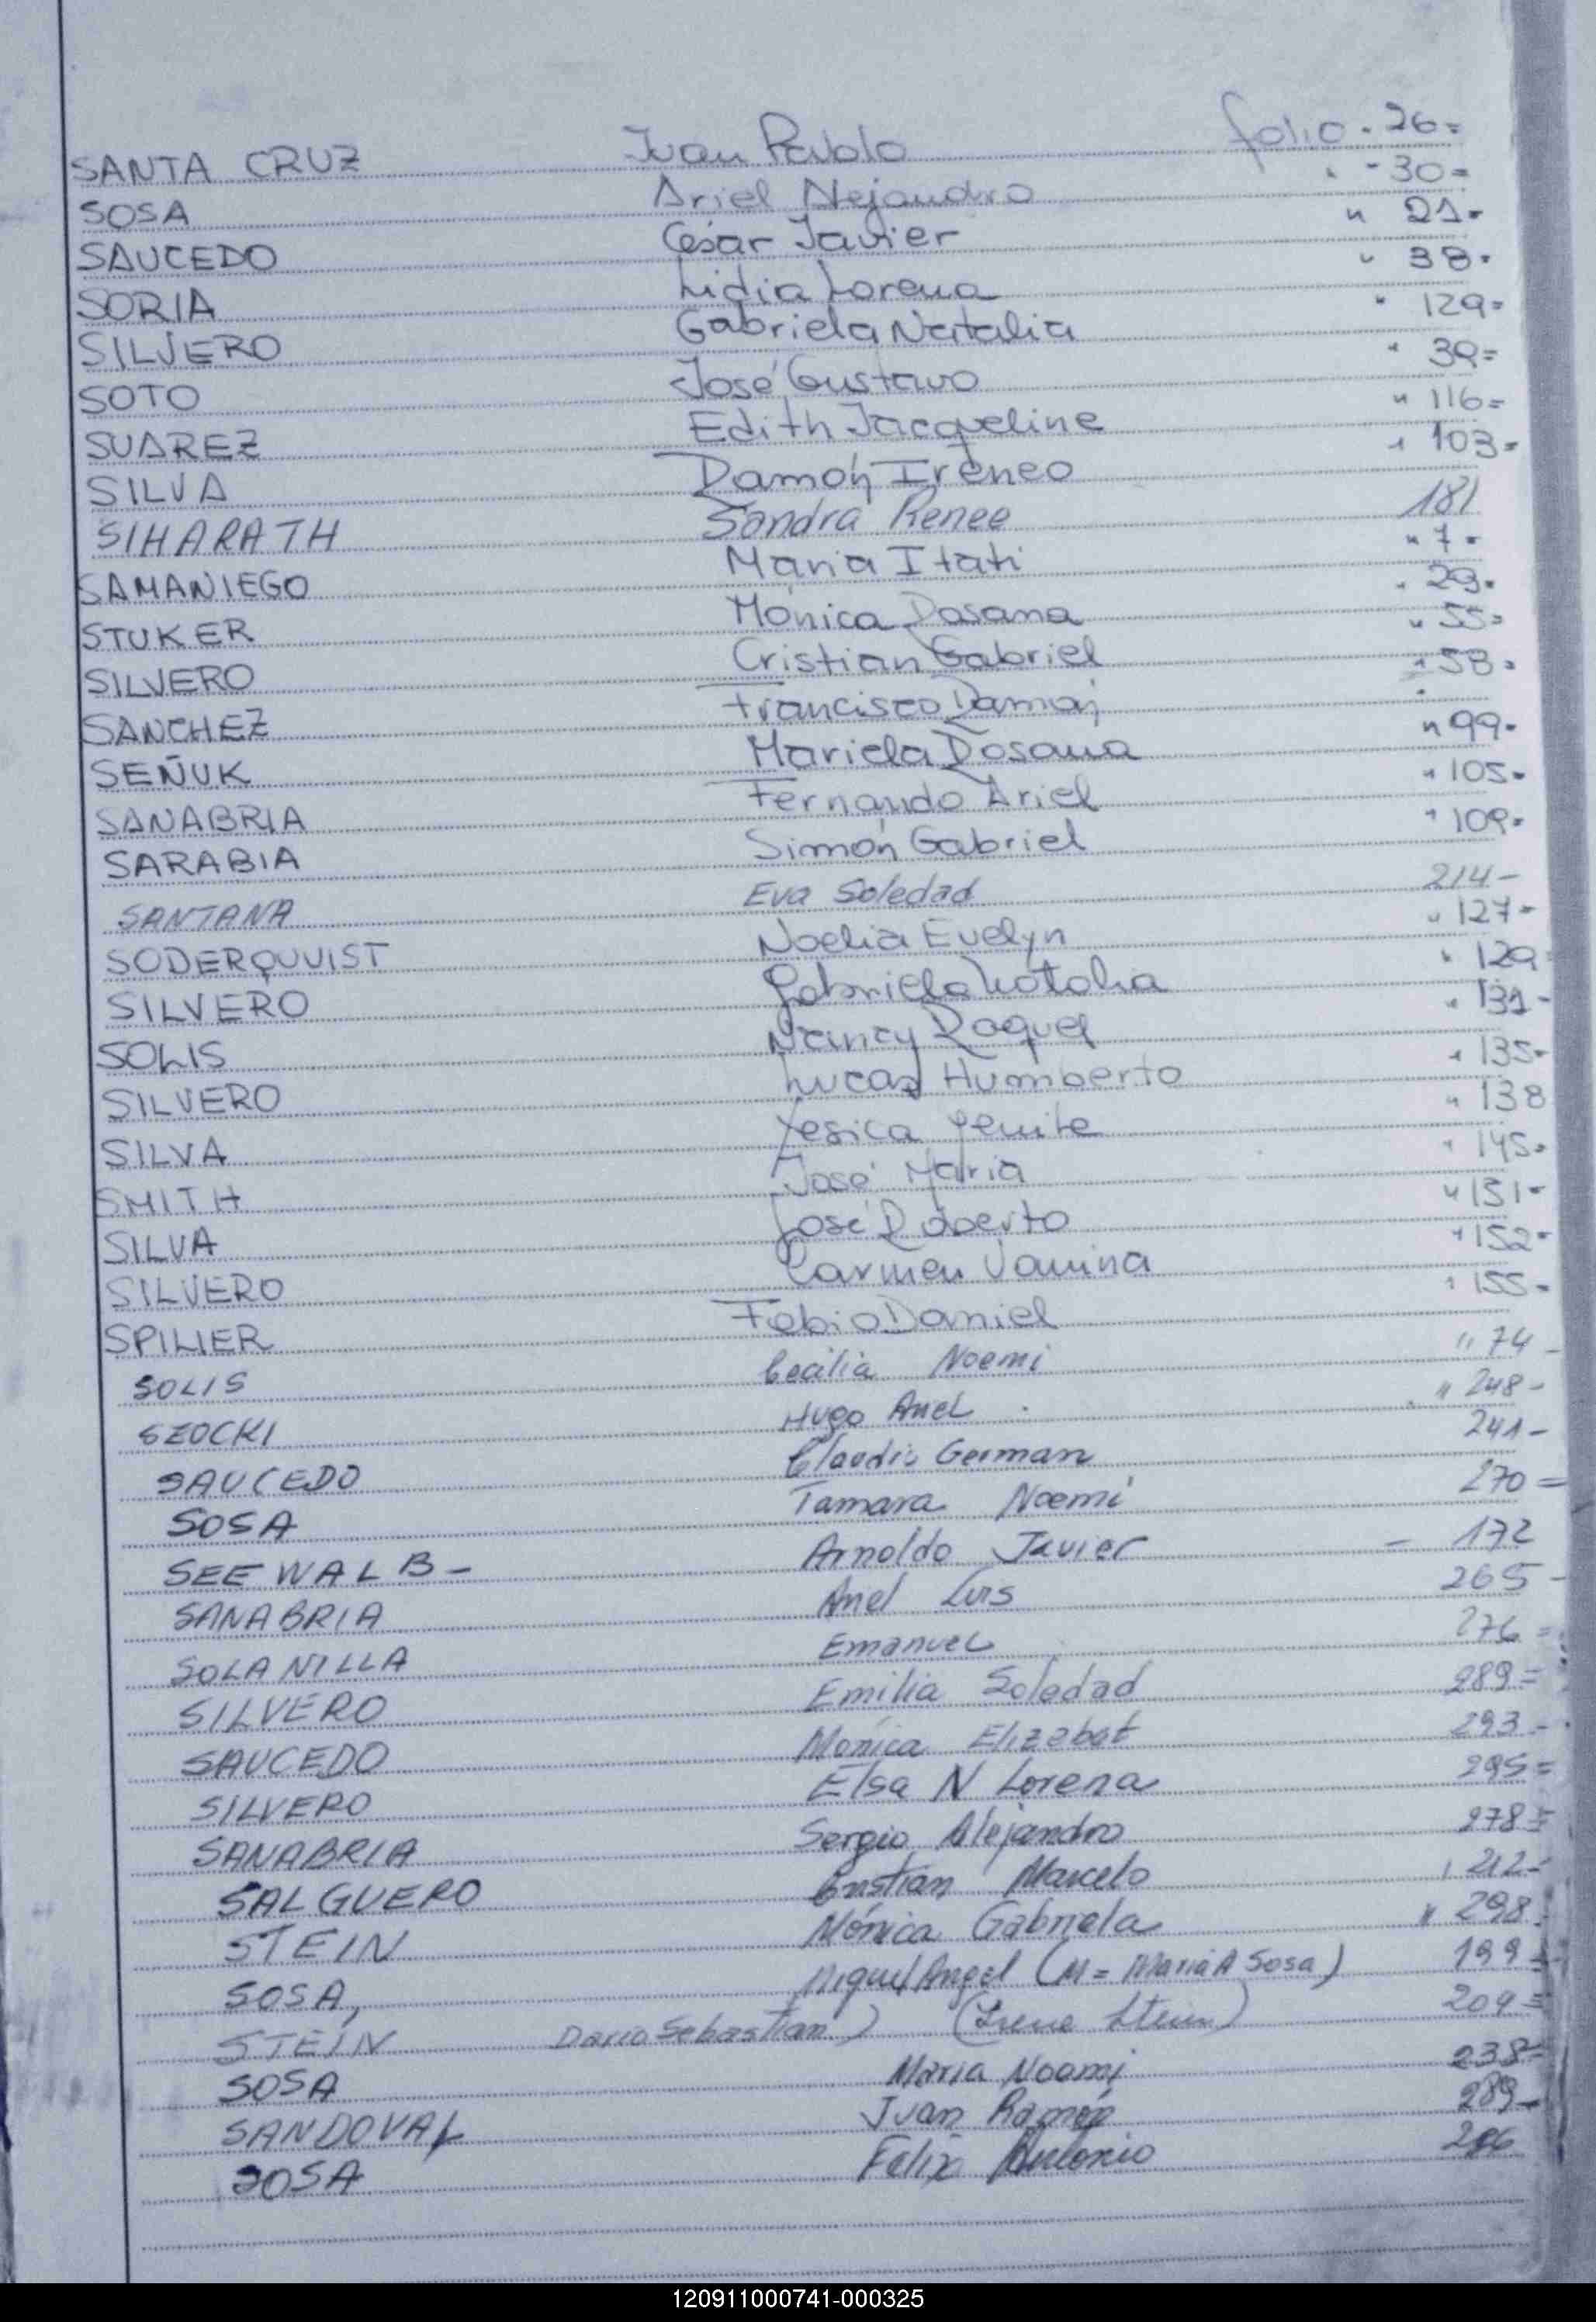 SANTA CRUZ Juan Pablo folio - 26=
SOSA Ariel Alejandro " - 30=
SAUCEDO César Javier " 21-
SORIA Lidia Lorena " 38-
SILVERO Gabriela Natalia " 129=
SOTO José Gustavo " 39=
SUAREZ Edith Jacqueline " 116=
SILVA Ramón Ireneo " 103-
SIHARATH Sandra Renee 181
SAMANIEGO Maria Itati " 7-
STUKER Mónica Rosana " 29-
SILVERO Cristian Gabriel " 55-
SANCHEZ Francisco Ramón " 58-
SEÑUK Mariela Rosana " 99-
SANABRIA Fernando Ariel " 105-
SARABIA Simón Gabriel " 109-
SANTANA Eva Soledad 214-
SODERQUVIST Noelia Evelyn " 127-
SILVERO Gabriela Natalia " 129
SOLIS Nancy Raquel " 131-
SILVERO Lucas Humberto " 135-
SILVA Yesica " 138
SMITH José Maria " 145-
SILVA José Roberto " 151-
SILVERO Carmen Vanina " 152-
SPILIER Fabio Daniel " 155-
SOLIS Cecilia Noemi " 74-
SZOCKI Hugo Ariel " 248-
SAUCEDO Claudio German 241-
SOSA Tamara Noemi 270=
SEEWALB- Arnoldo Javier - 172
SANABRIA Ariel Luis 265-
SOLANILLA Emanuel 276=
SILVERO Emilia Soledad 289=
SAUCEDO Mónica Elizabet 293-
SILVERO Elsa N Lorena 295=
SANABRIA Sergio Alejandro 278=
SALGUERO Cristian Marcelo 212-
STEIN Mónica Gabriela " 298-
SOSA, Miguel Angel (M= Maria A Sosa) 199=
STEIN Dario Sebastian) (Irene Stein) 209=
SOSA Maria Noemi 238=
SANDOVAL Juan Ramón 289-
SOSA Felix Antonio
120911000741-000325